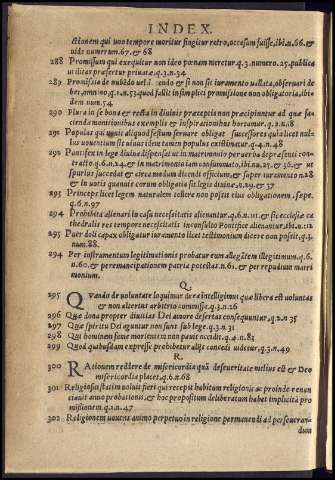 INDEX.
ctionem qui uno tempore moritur fingitur retro, occasum fuisse, ibi. n. 66. &
uide numerum. 67. & 68
288 Promissum qui exequitur non ideo pœnam meretur. q. 3. numero. 25. publica
utilitas præfertur priuatæ. q. 3. n. 34
289 Promissio de nubẽdo uel ñ. cẽdo & si non sit iuramento uallata, obseruari de
bet, omnino. q. 1. n. 53. quod fallit in simplici promissione non obligatoria, ibi
dem num. 54
290 Plura in se bona & recta in diuinis præceptis non præcipiuntur ad quæ fa-
cienda monitionibus exemplis & inspirationibus hortamur. q. 2. n. 18
291 Populus qui uouit aliquod festum seruare obligat successores qui licet nul-
lus uouentium sit uiuus idem tamen populus existimatur. q. 4. n. 48
292 Pontifex in lege diuina dispensat ut in matrimonio per uerba de præsenti con-
tracto. q. 6. n. 24. & in matrimonio iam consummato, ibi. nu. 25. & 36. & ut
spurius succedat & circa modum dicendi officium, & super iuramento n. 28
& in uotis quanuis eorum obligatio sit legis diuinæ, 9. 29. & 37
293 Princeps licet legem naturalem tollere non possit eius obligationem. sæpe.
q. 6. n. 97
294 Prohibita alienari in casu necessitatis alienantur. q. 6. n. 111. & sic ecclesiæ ca
thedralis res tempore necessitatis inconsulto Pontifice alienantur, ibi. n. 112
295 Puer doli capax obligatur iuramento licet testimonium dicere non possit. q. 3.
num. 88.
294 Per instrumentum legitimationis probatur eum allegãtem illegitimum. q. 6
n. 60. & per emancipationem patria potestas. n. 61. & per repudium matri
monium.
Q.
295 QVando de uoluntate loquimur de ea intelligimus quæ libera est uoluntas
& non alterius arbitrio commissæ. q. 3. n. 26
296 Quæ dona propter diuitias Dei amore desertas consequuntur, q. 2. n 35
297 Quæ spiritu Dei aguntur non sunt sub lege. q. 3. n. 31
298 Qui hominem fame morientem non pauit occidit. q. 4. n. 81
299 Quod quibusdam expresse prohibetur alijs concedi uidetur, q. 3. n. 49
R.
300 RAtionem reddere de misericordia quã de seueritate melius est & Deo
misericordia placet, q. 6. n. 68
301 Religiosus statim uoluit fieri qui recepit habitum religionis & proinde renun
ciauit anno probationis, & hoc propositum deliberatum habet implicitã pro
missionem. q. 1. n. 47
302 Religionem uouens animo perpetuo in religione permanendi ad perseueran-
dum